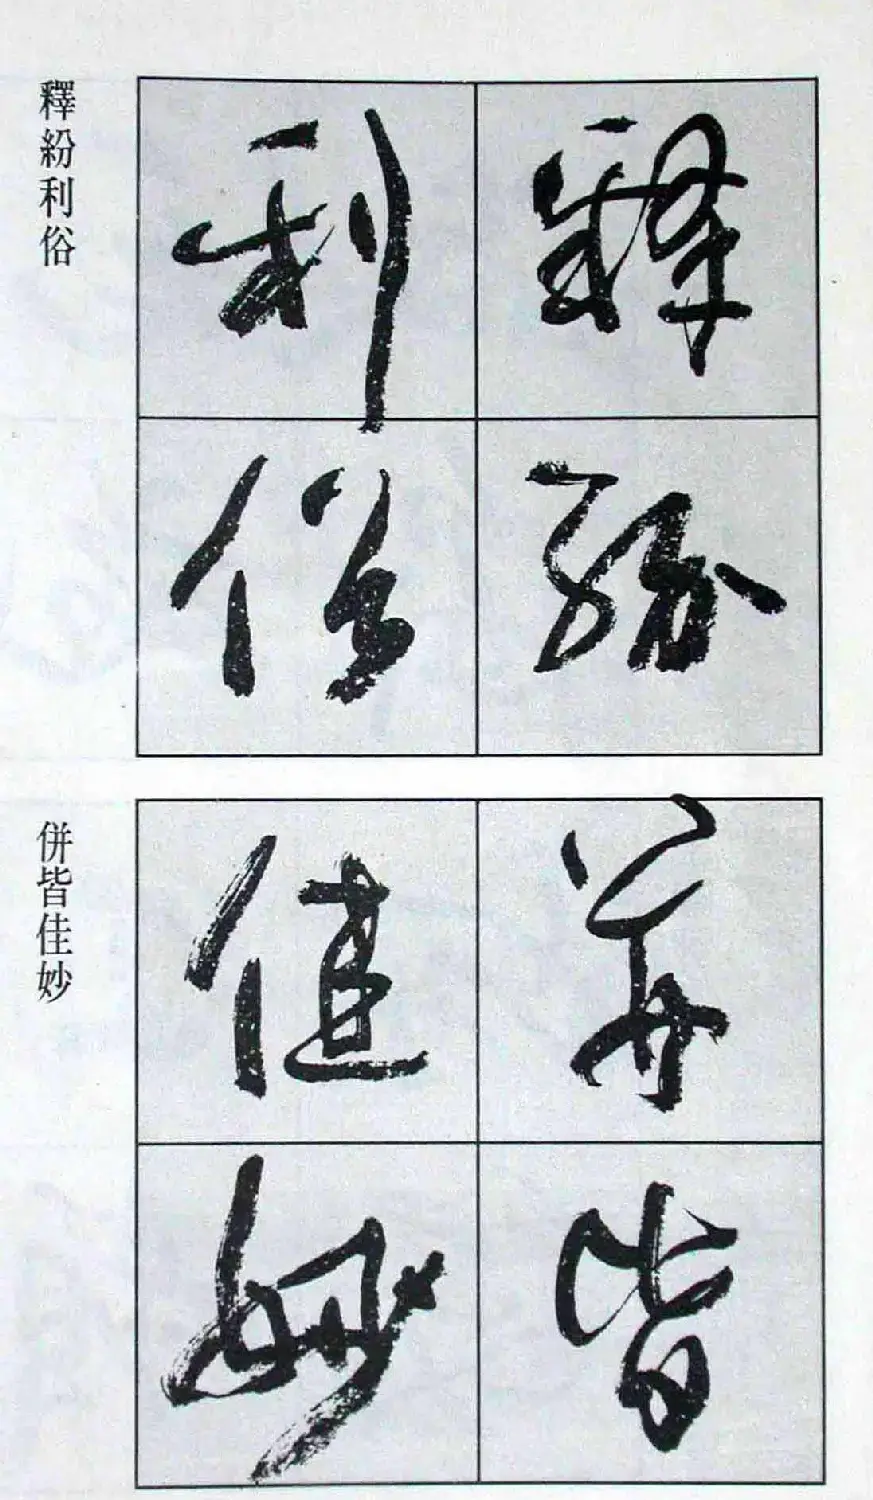 釋紛
利俗
釋紛利俗
并皆
佳妙
併皆佳妙